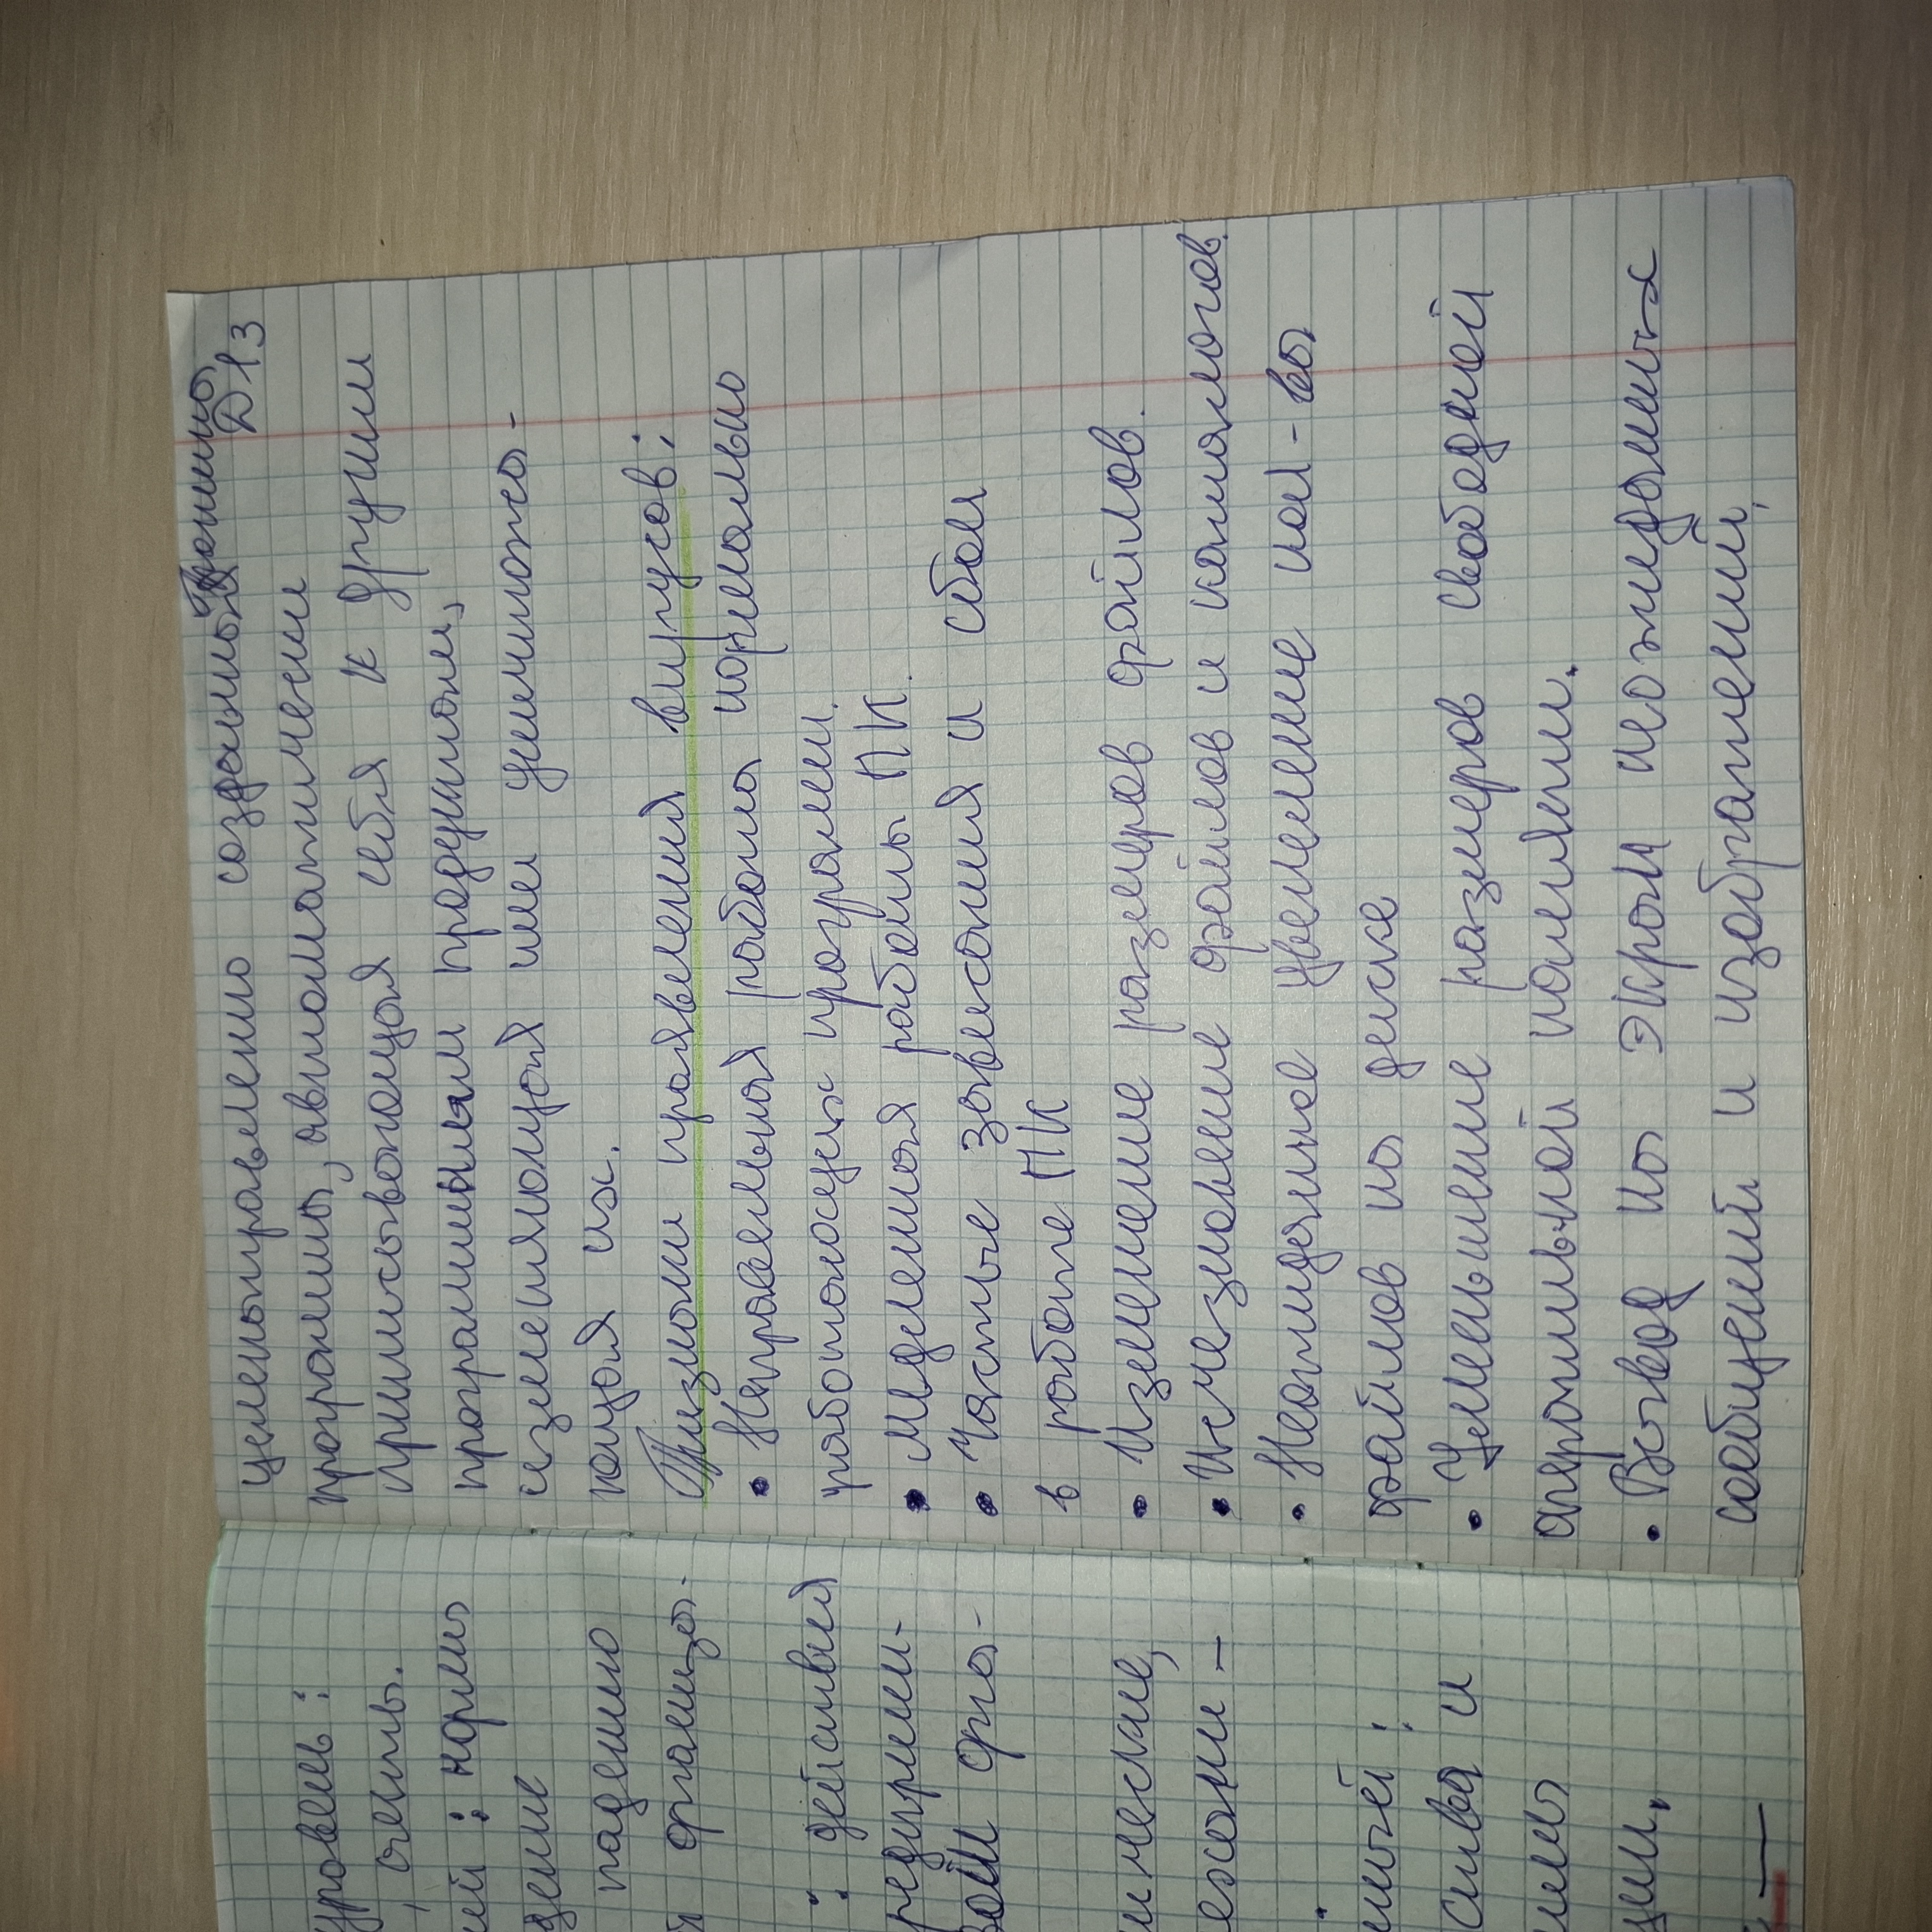 Тронина
Д13
целенаправлено созданные
программы, автоматически
приписывающая себя к другим
программным продуктам,
изменяющая или уничтожа-
ющая их.
Признаки проявления вирусов:
• Неправельная работа нормально
работающих программ.
• Медленная работы ПК.
• Частые зависания и сбои
в работе ПК
• Изменение размеров файлов.
• Исчезновение файлов и каталогов.
• Неожиданное увеличение кол-ва
файлов на диске
• Уменьшение размеров свободной
оперативной памяти.
• Вывод на экран неожиданных
сообщений и изображений.
уровень:
нормы
дение
падению
: действия
редприни-
ческие,
и